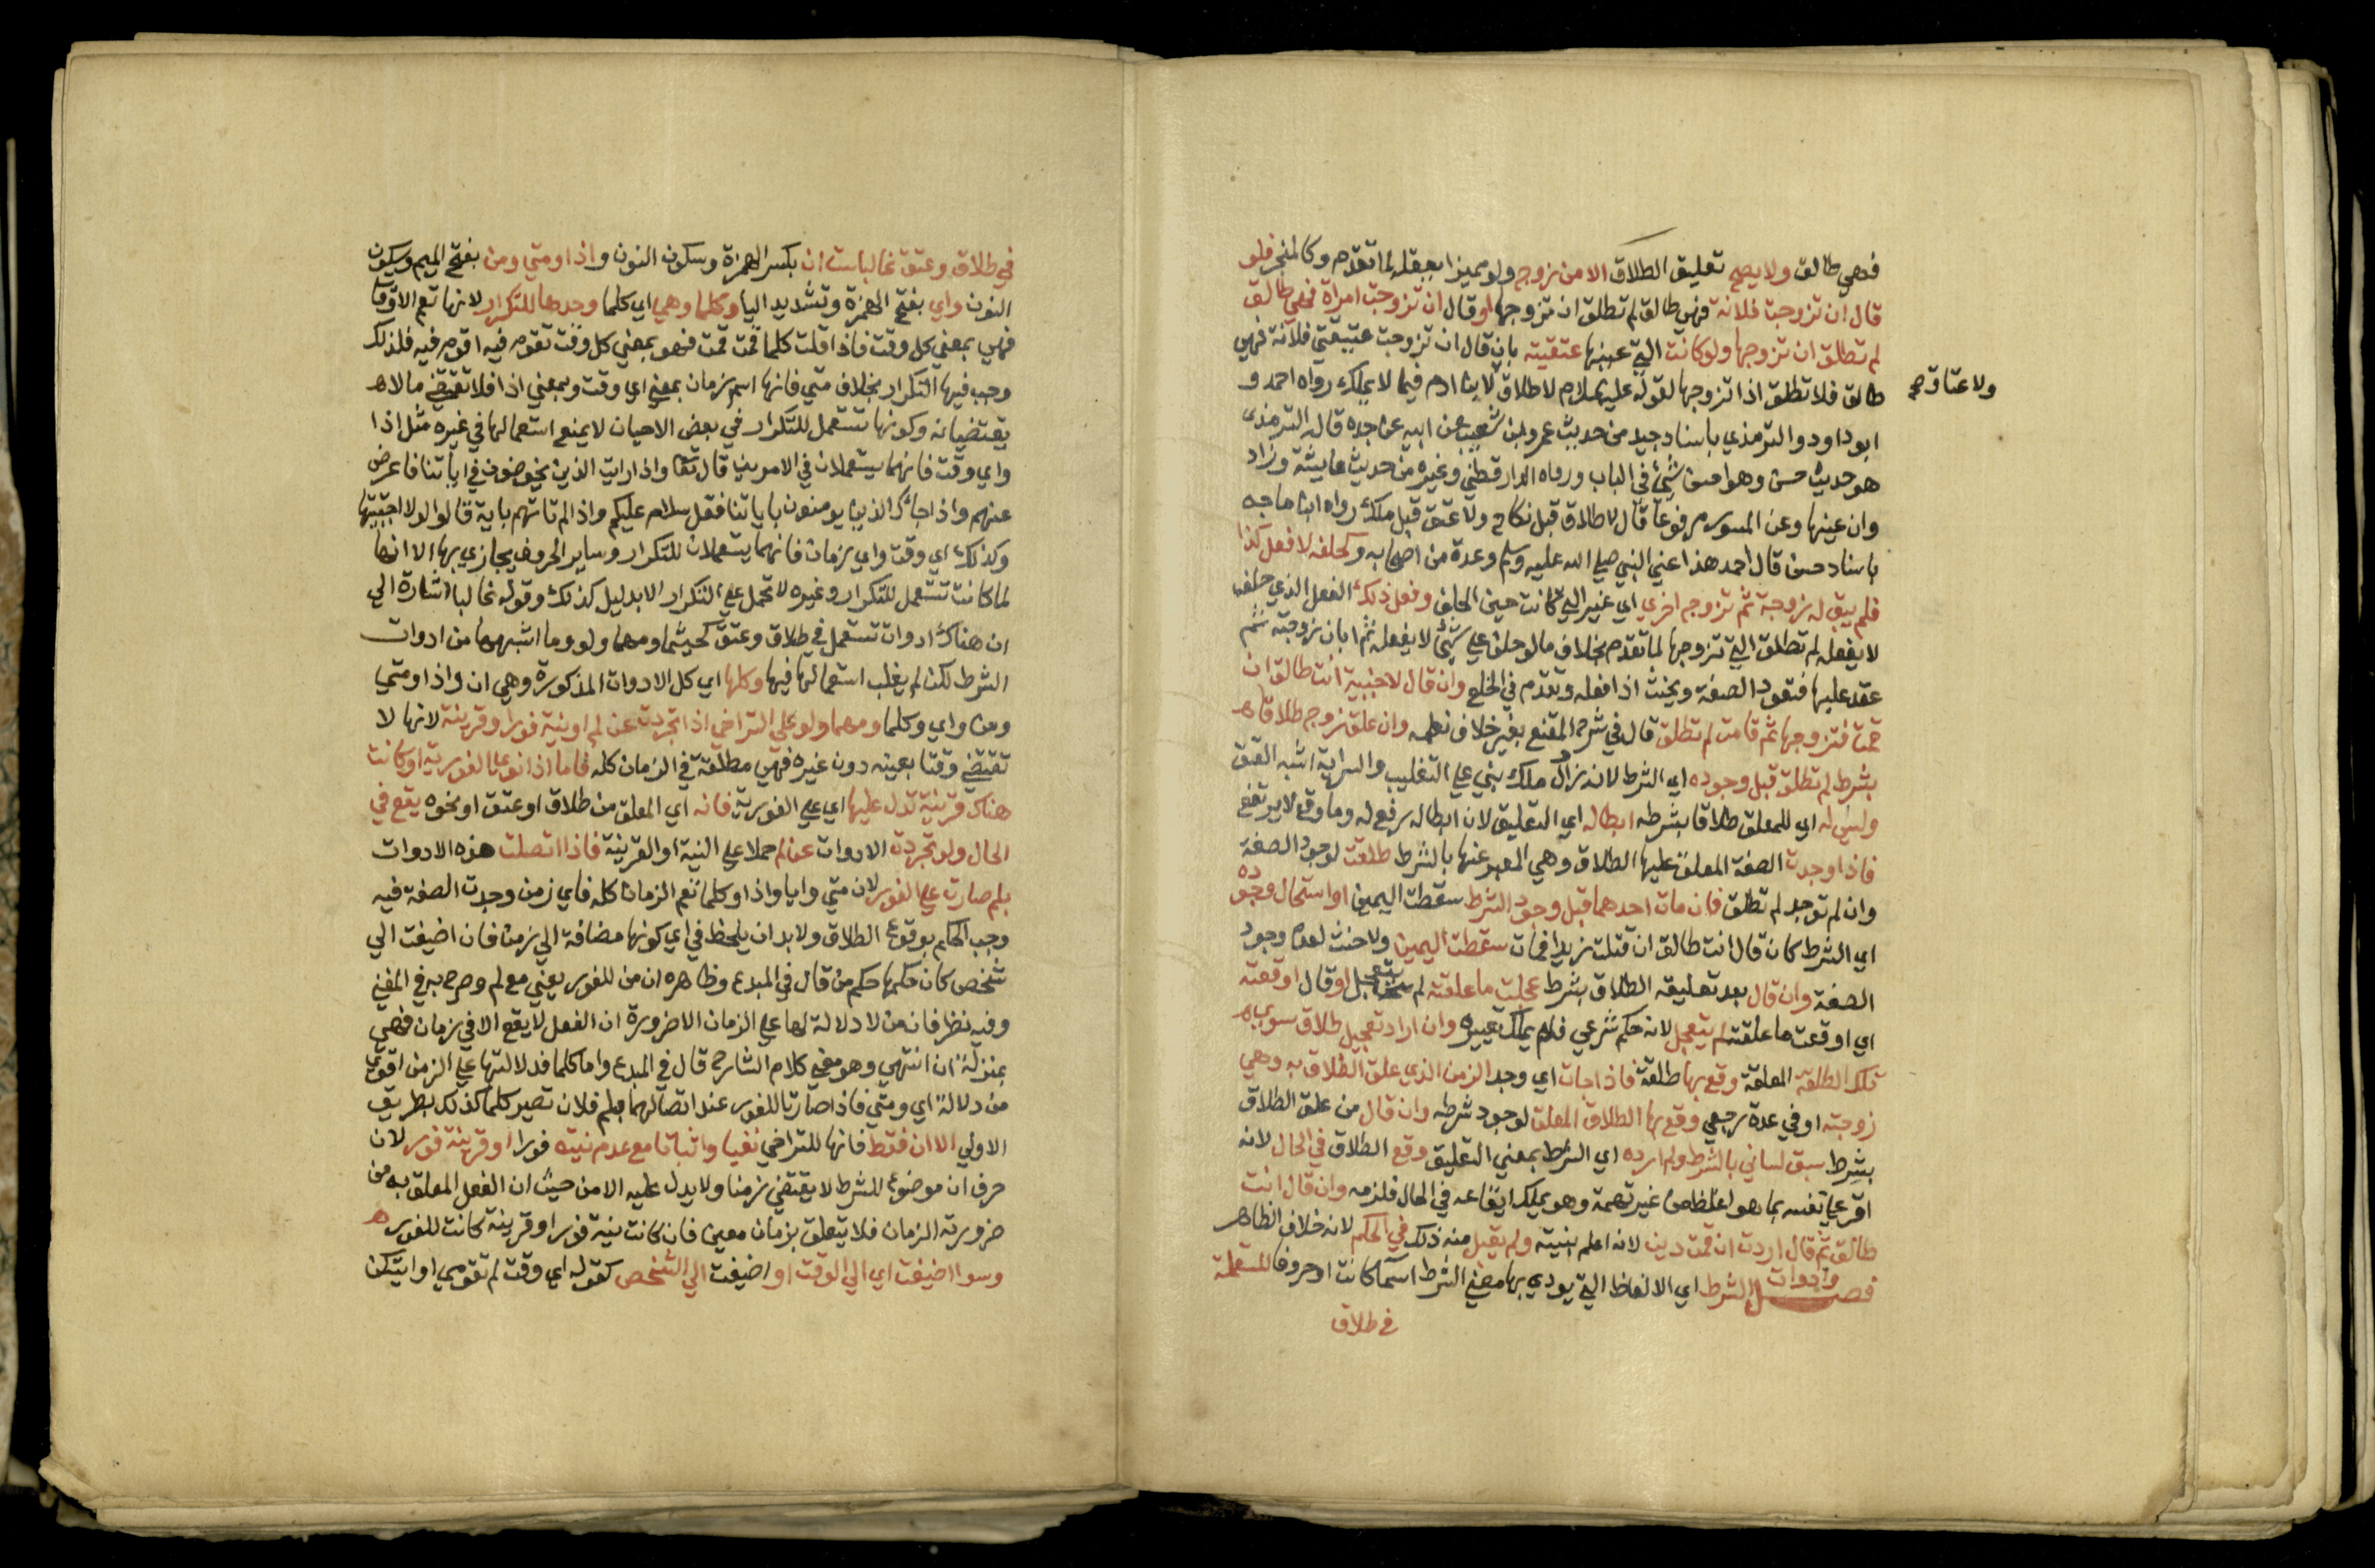 فهي طالق ولا يصح تعليق الطلاق الا من زوج ولو مميزا يعقله لما تقدم وكالمنجز فلو
قال ان تزوجت فلانة فهي طالق لم تطلق ان تزوجها او قال ان تزوجت امراة فهي طالق
لم تطلق ان تزوجها ولو كانت التي عينها عتيقته بان قال ان تزوجت عتيقتي فلانة فهي
طالق فلا تطلق اذا تزوجها لقوله عليه السلام لا طلاق لابن ادم فيما لا يملك رواه احمد و
ولا عتاق صح
ابو داود والترمذي باسناد جيد من حديث عمرو بن شعيب عن ابيه عن جده قال الترمذي
هو حديث حسن وهو احسن شيء في الباب ورواه الدارقطني وغيره من حديث عايشة وزاد
وان عينها وعن المسور مرفوعا قال لا طلاق قبل نكاح ولا عتق قبل ملك رواه ابن ماجه
باسناد حسن قال احمد هذا عن النبي صلي الله عليه وسلم وعدة من اصحابه وكحلفه لا فعل كذا
فلم يبق له زوجة ثم تزوج اخري اي غير التي كانت حين الحلف وفعل ذلك الفعل الذي حلف
لا يفعله لم تطلق التي تزوجها لما تقدم بخلاف ما لو حلف علي شيء لا يفعله ثم ابان زوجته ثم
عقد عليها فتعود الصفة ويحنث اذا فعله وتقدم في الخلع وان قال لاجنبية انت طالق ان
قمت فتزوجها ثم قامت لم تطلق قال في شرح المقنع بغير خلاف نعلمه وان علق زوج طلاقا
بشرط لم تطلق قبل وجوده اي الشرط لانه زال ملك بني علي التغليب والسراية اشبه العتق
وليس له اي للمعلق طلاقا بشرطه ابطاله اي التعليق لان ابطاله رفع له وما وقع لا يرتفع
فاذا وجدت الصفة المعلق عليها الطلاق وهي المعبر عنها بالشرط طلقت لوجود الصفة
وان لم توجد لم تطلق فان مات احدهما قبل وجود الشرط سقطت اليمين او استحال وجوده
اي الشرط كان قال انت طالق ان قتلت زيدا فمات سقطت اليمين ولا حنث لعدم وجود
الصفة وان قال بعد تعليقه الطلاق بشرط عجلت ما علقته لم يتعجل او قال اوقعته
اي اوقعت ما علقته لم يتعجل لانه حكم شرعي فلم يملك تغييره وان اراد تعجيل طلاق سوي
تلك الطلقة المعلقة وقع بها طلقة فاذا جات اي وجد الزمن الذي علق الطلاق به وهي
زوجته او في عدة رجعي وقع بها الطلاق المعلق لوجود شرطه وان قال من علق الطلاق
بشرط سبق لساني بالشرط ولم ارده اي الشرط بمعني التعليق وقع الطلاق في الحال لانه
اقر علي نفسه بما هو اغلظ من غير تهمة وهو يملك ايقاعه في الحال فلزمه وان قال انت
طالق ثم قال اردت ان قمت دين لانه اعلم بنيته ولم يقبل منه ذلك في الحكم لانه خلاف الظاهر
فصل وادوات الشرط اي الالفاظ التي يودي بها معني الشرط اسما كانت او حروفا المستعملة
في طلاق
في طلاق وعتق غالبا ست ان بكسر الهمزة وسكون النون واذا ومتي ومن بفتح الميم وسكون
النون واي بفتح الهمزة وتشديد اليا وكلما وهي اي كلما وحدها للتكرار لانها تعم الاوقات
فهي بمعني كل وقت فاذا قلت كلما قمت قمت فهو بمعني كل وقت تقوم فيه اقوم فيه فلذلك
وجب فيها التكرار بخلاف متي فانها اسم زمان بمعني اي وقت وبمعني اذا فلا تقتضي ما لا
يقتضيانه وكونها تستعمل للتكرار في بعض الاحيان لا يمنع استعمالها في غيره مثل اذا
واي وقت فانهما يستعملان في الامرين قال تعا واذا رايت الذين يخوضون في اياتنا فاعرض
عنهم واذا جاك الذين يومنون باياتنا فقل سلام عليكم واذا لم تاتهم باية قالوا لولا اجتبيتها
وكذلك اي وقت واي زمان فانهما يستعملان للتكرار وساير الحروف يجازي بها الا انها
لما كانت تستعمل للتكرار وغيره لا تحمل علي التكرار الا بدليل كذلك وقوله غالبا اشارة الي
ان هناك ادوات تستعمل في طلاق وعتق كحيثما ومهما ولو وما اشبهها من ادوات
الشرط لكن لم يغلب استعمالها فيها وكلها اي كل الادوات المذكورة وهي ان واذا ومتي
ومن واي وكلما ومهما ولو علي التراخي اذا تجردت عن لم او نية فور او قرينة لانها لا
تقتضي وقتا بعينه دون غيره فهي مطلقة في الزمان كله فاما اذا نوي الفورية او كانت
هناك قرينة تدل عليها اي علي الفورية فانه اي المعلق من طلاق او عتق او نحوه يقع في
الحال ولو تجردت الادوات عن لم حملا علي النية او القرينة فاذا اتصلت هذه الادوات
بلم صارت علي الفور لان متي وايا واذا وكلما تعم الزمان كله فاي زمن وجدت الصفة فيه
وجب الحكم بوقوع الطلاق ولا بد ان يلحظ في اي كونها مضافة الي زمن فان اضيفت الي
شخص كان حكمها حكم من قال في المبدع وظاهره ان من للفور يعني مع لم وصرح به في المغني
وفيه نظر فان من لا دلالة لها علي الزمان الا ضرورة ان الفعل لا يقع الا في زمان فهي
بمنزلة ان انتهي وهو معني كلام الشارح قال في المبدع واما كلما فدلالتها علي الزمن اقوي
من دلالة اي ومتي فاذا صارتا للفور عند اتصالهما بلم فلان تصير كلما كذلك بطريق
الاولي الا ان فقط فانها للتراخي نفيا واثباتا مع عدم نية فور او قرينة فور لان
حرف ان موضوع للشرط لا يقتضي زمنا ولا يدل عليه الا من حيث ان الفعل المعلق به من
ضرورته الزمان فلا يتعلق بزمان معين فان كانت نية فور او قرينة كانت للفور
وسوا اضيفت اي الي الوقت او اضيفت الي الشخص كقوله اي وقت لم تقومي او ايتكن